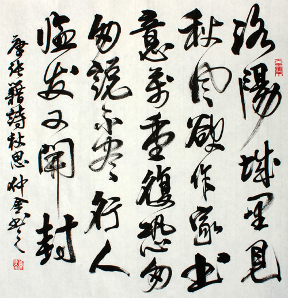 洛陽城里見
秋風欲作家書
意萬重復恐匆
匆說不盡行人
臨發又開封
唐張籍詩秋思 仲書之